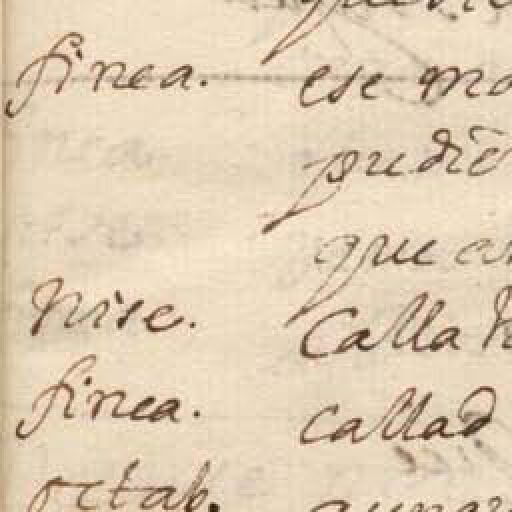 finea. ese
pudie
que
Nise. Calla
finea. callad
octab.